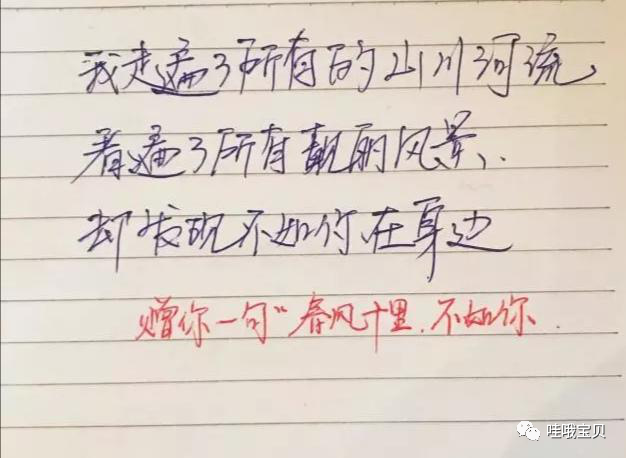 我走遍了所有的山川河流、
看遍了所有靓丽风景、
却发现不如你在身边
赠你一句“春风十里.不如你.
哇哦宝贝